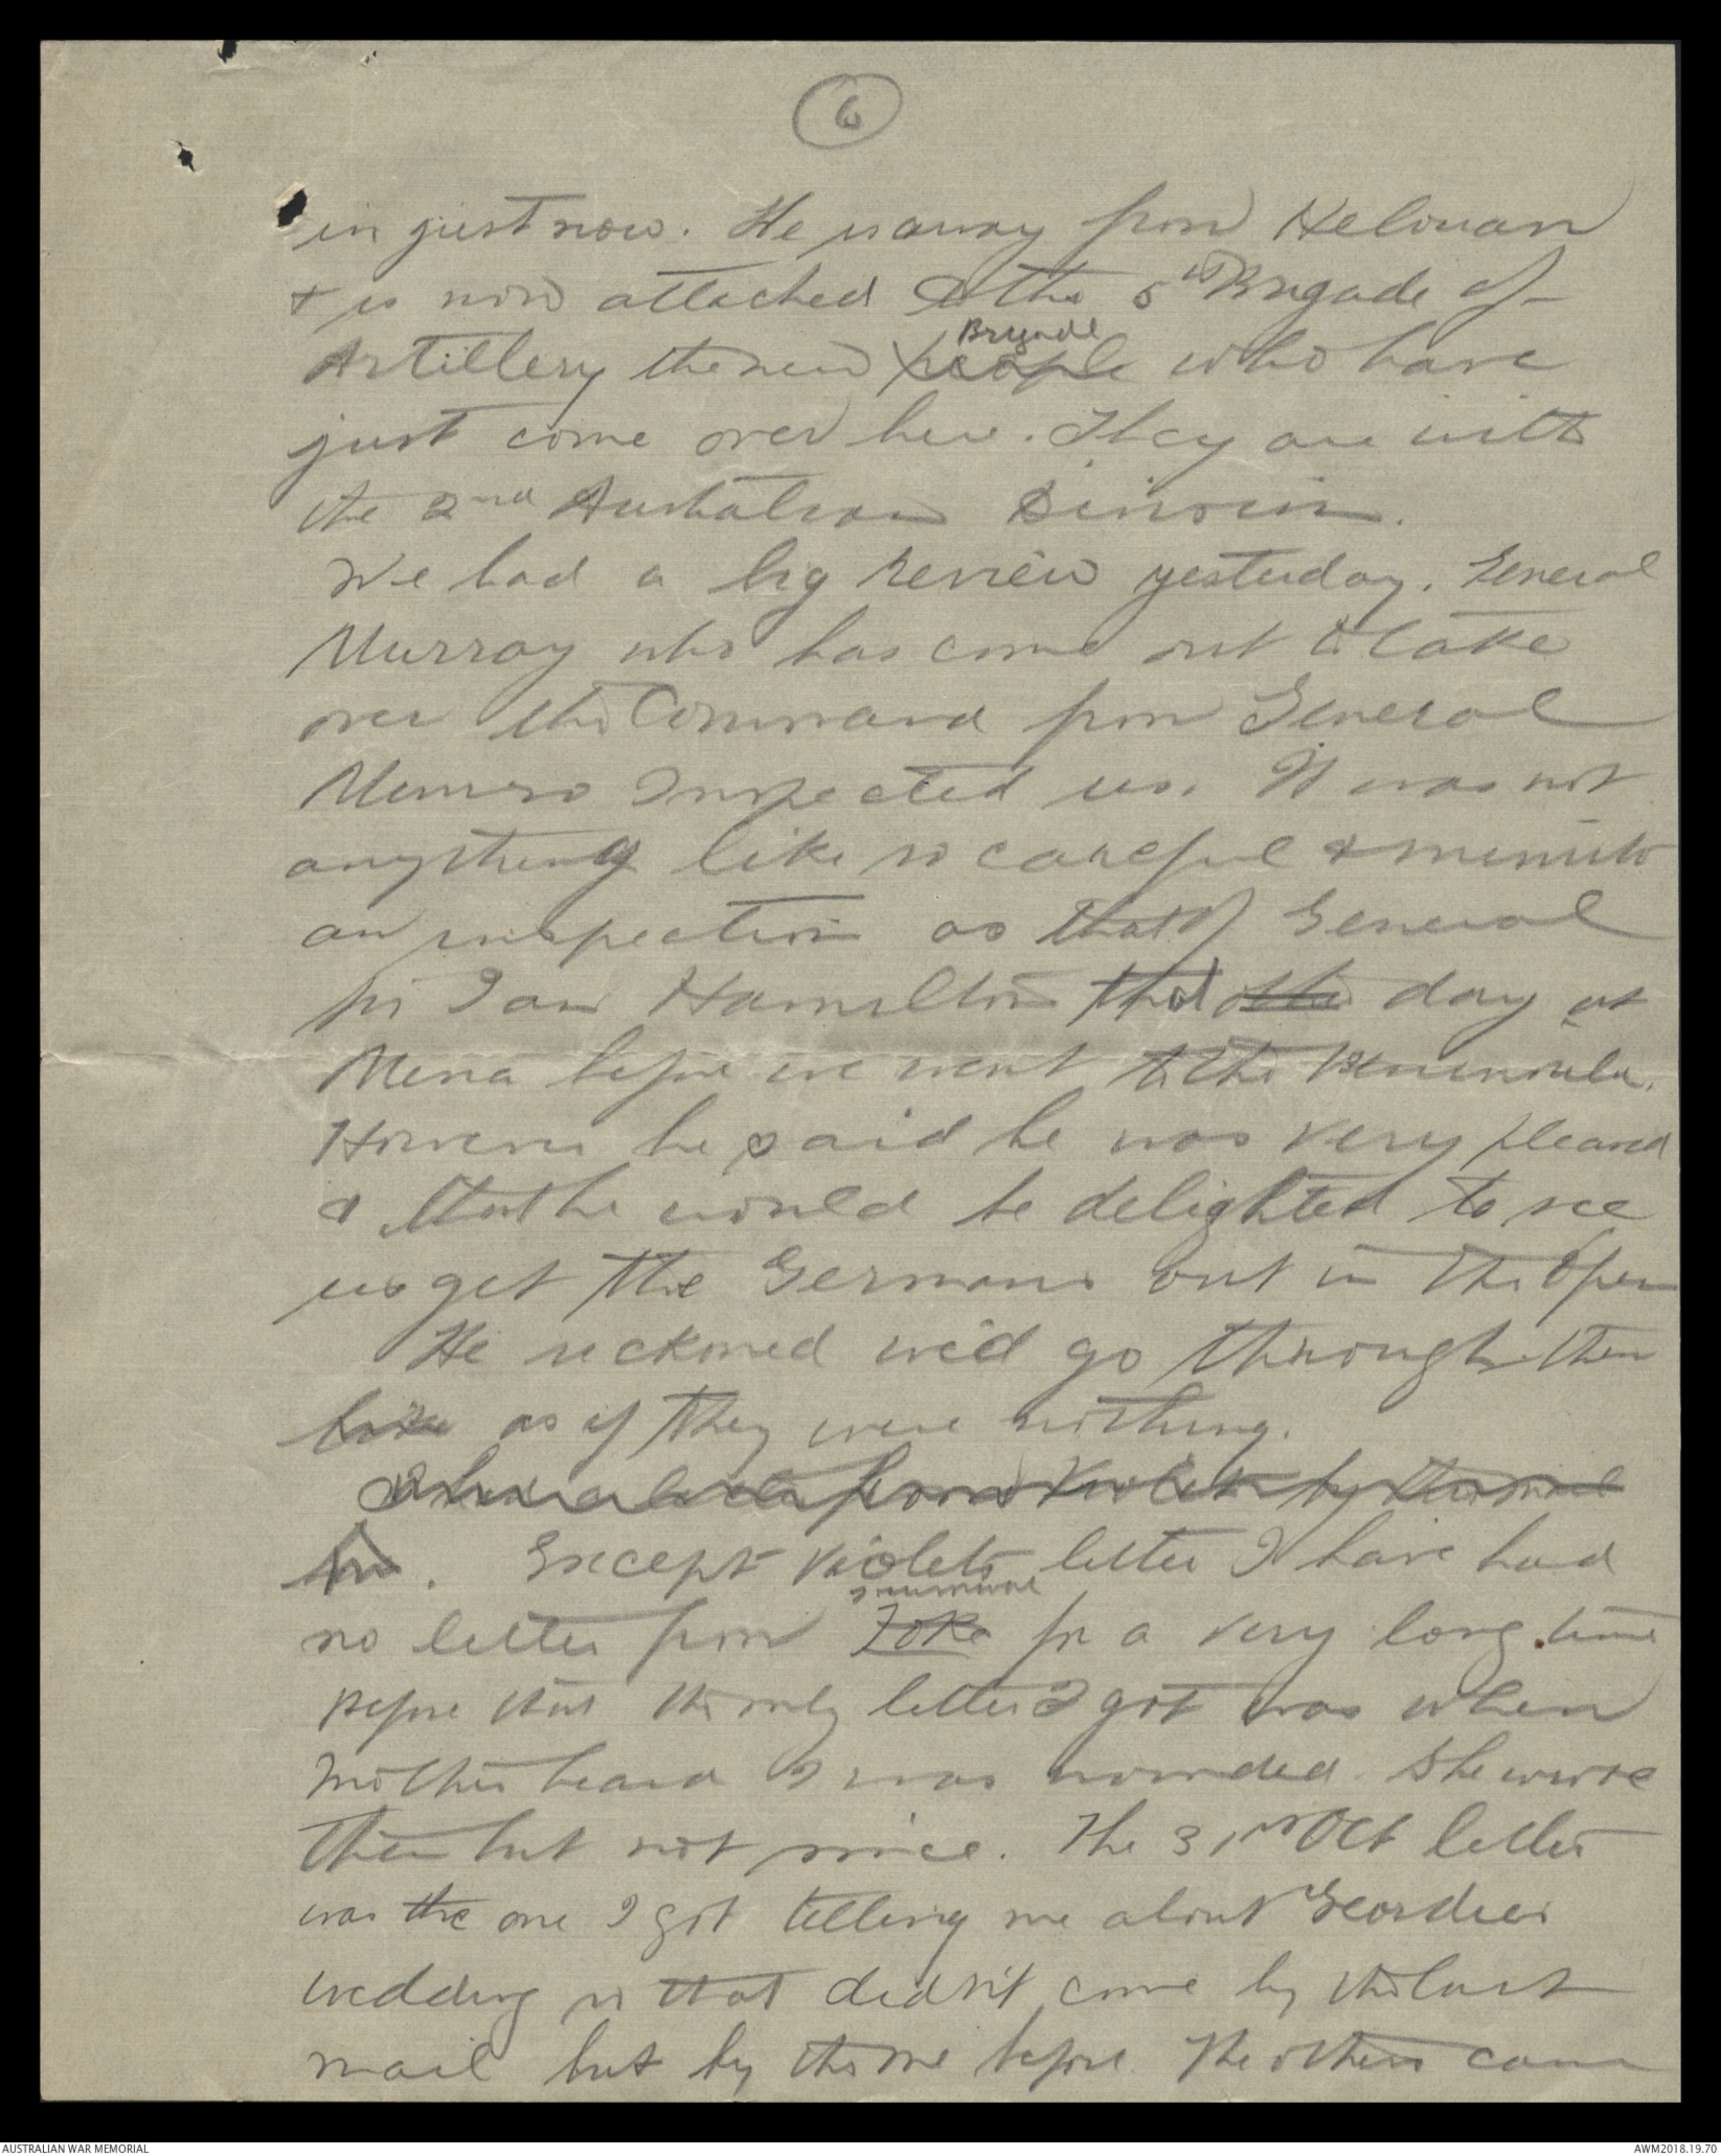 6
in just now. He is away from Helouan
& is now attached to the 5th Brigade of
Brigade
Artillery the new people who have
just come over here. They are with
the 2nd Australian Division.
We had a big review yesterday. General
Murray who has come out to take
over the Command from General
Munro Inspected us. It was not
anything like so careful & minute
an inspection as that of General
Sir Ian Hamilton that other day at
Mena before we went to the Peninsula.
However he said he was very pleased
& that he would be delighted to see
us get the Germans out in the open
He reckoned we'd go through them
like as if they were nothing.
I have a letter from Violet by this mail
. Except Violets letter I have had
no letter from Zoke for a very long time
before that the only letter I got was when
Mother heard I was wounded. She wrote
then but not since. The 31st Oct letter
was the one I got telling me about Geordies
wedding so that didn't come by the last
mail but by the one before. The others came
AUSTRALIAN WAR MEMORIAL
AWM2018.19.70